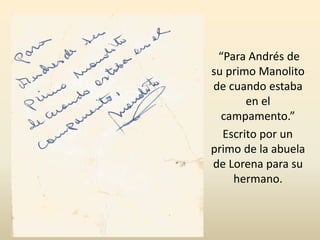 Para
Andres de su
primo Manolito
de cuando estaba en el
campamento,
Manolito
“Para Andrés de
su primo Manolito
de cuando estaba
en el
campamento.”
Escrito por un
primo de la abuela
de Lorena para su
hermano.